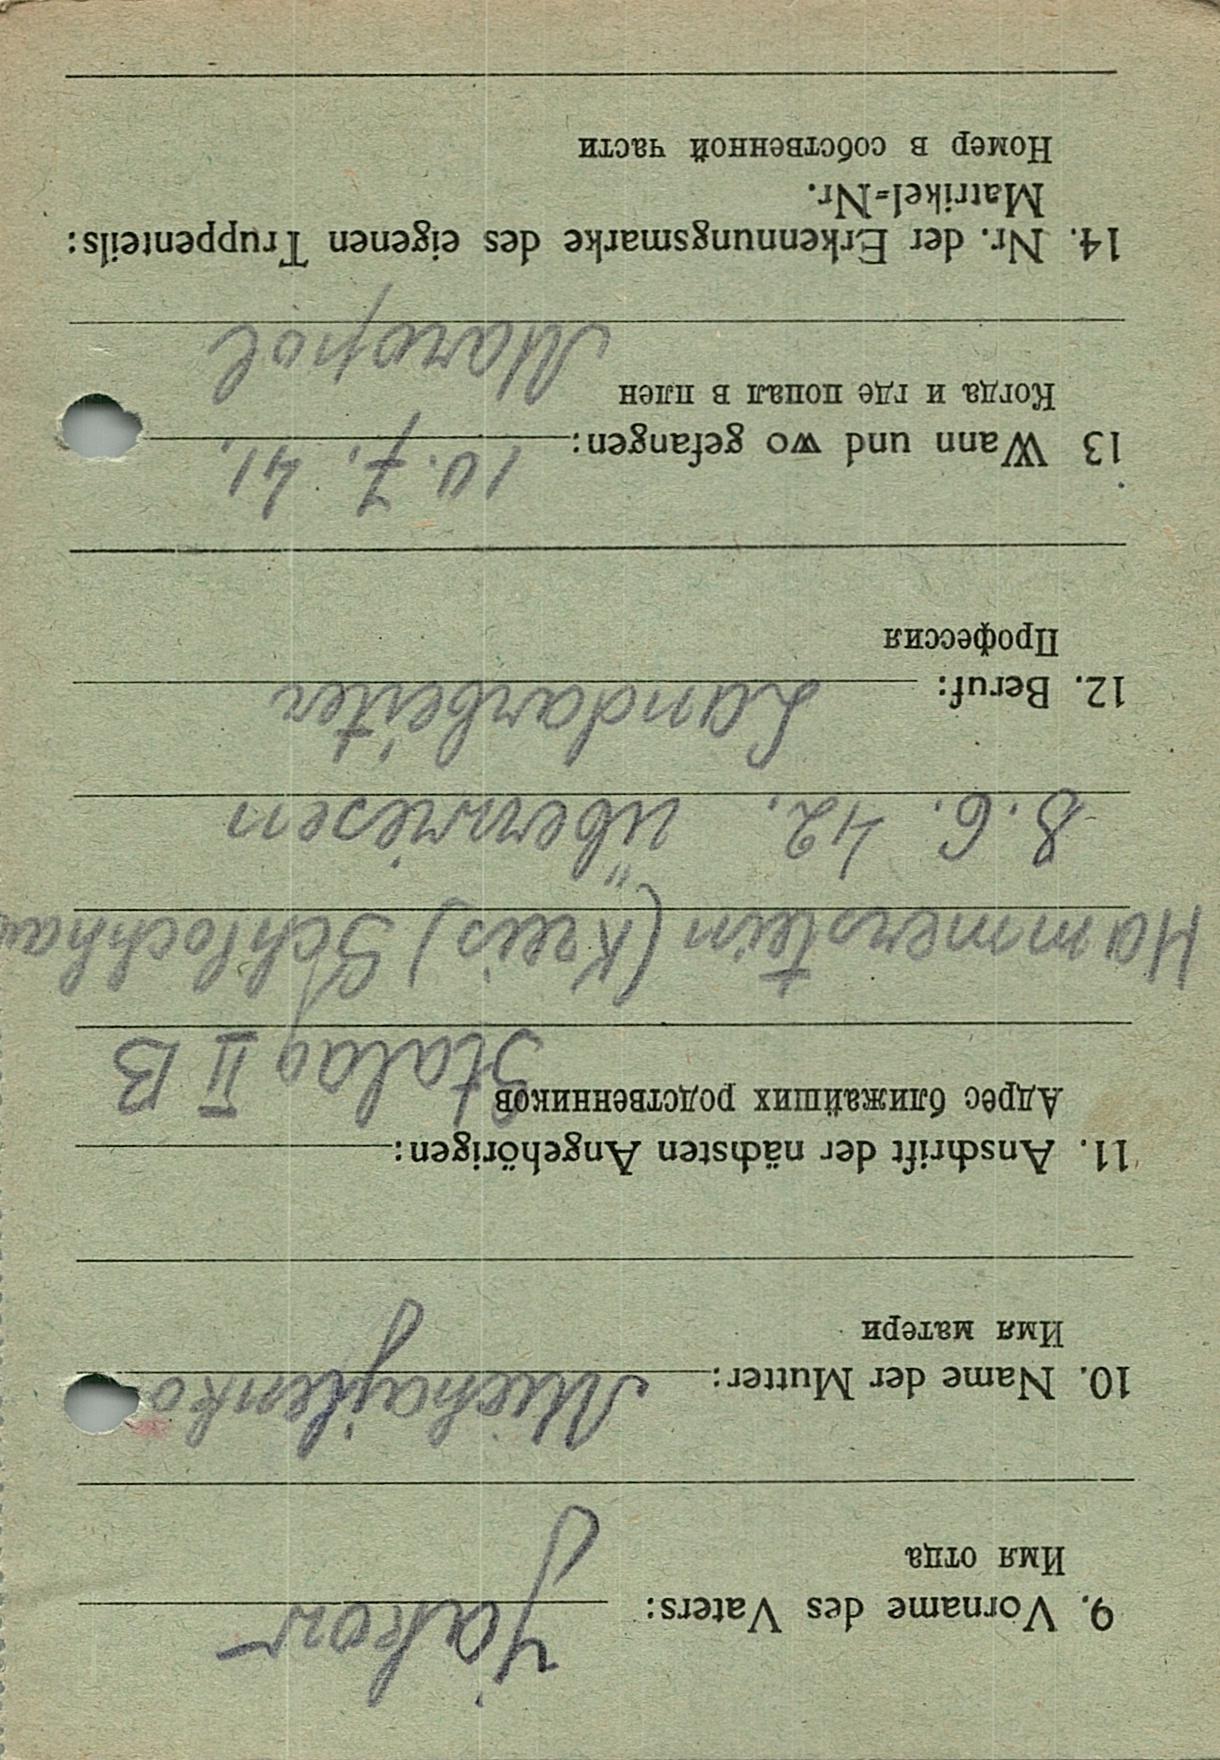 9. Vorname des Vaters: Jakow
Имя отца
10. Name der Mutter: Michajlenko
Имя матери
11. Anschrift der nächsten Angehörigen:
Адрес ближайших родственников Stalag II B
Hammerstein (Kreis) Schlochhau
8. 6. 42. überwiesen
12. Beruf: Landarbeiter
Профессия
13 Wann und wo gefangen: 10. 7. 41.
Когда и где попал в плен Maropol
14. Nr. der Erkennungsmarke des eigenen Truppenteils:
Matrikel=Nr.
Номер в собственной части